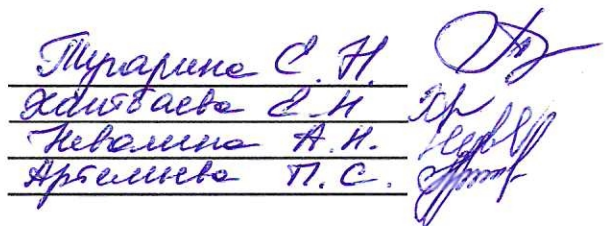 Турарина Е. Н.
Хаитбаева Е. Н
Неволина А. Н.
Артемьева П. С.